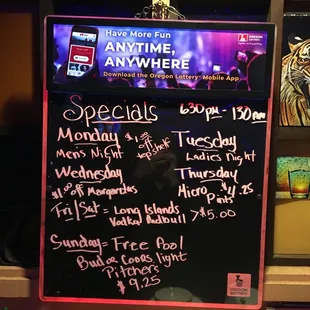 Have More Fun
ANYTIME,
ANYWHERE
Download the Oregon Lottery® Mobile App
Specials 630pm - 130am
Monday $1.25 off
Men's Night top shelf
Tuesday
Ladies Night
Wednesday
$1.00 off Margaritas
Thursday
Micro $4.25
Pints
Fri/Sat = Long Islands
Vodka Redbull >$5.00
Sunday = Free Pool
Bud or Coors light
Pitchers
$9.25